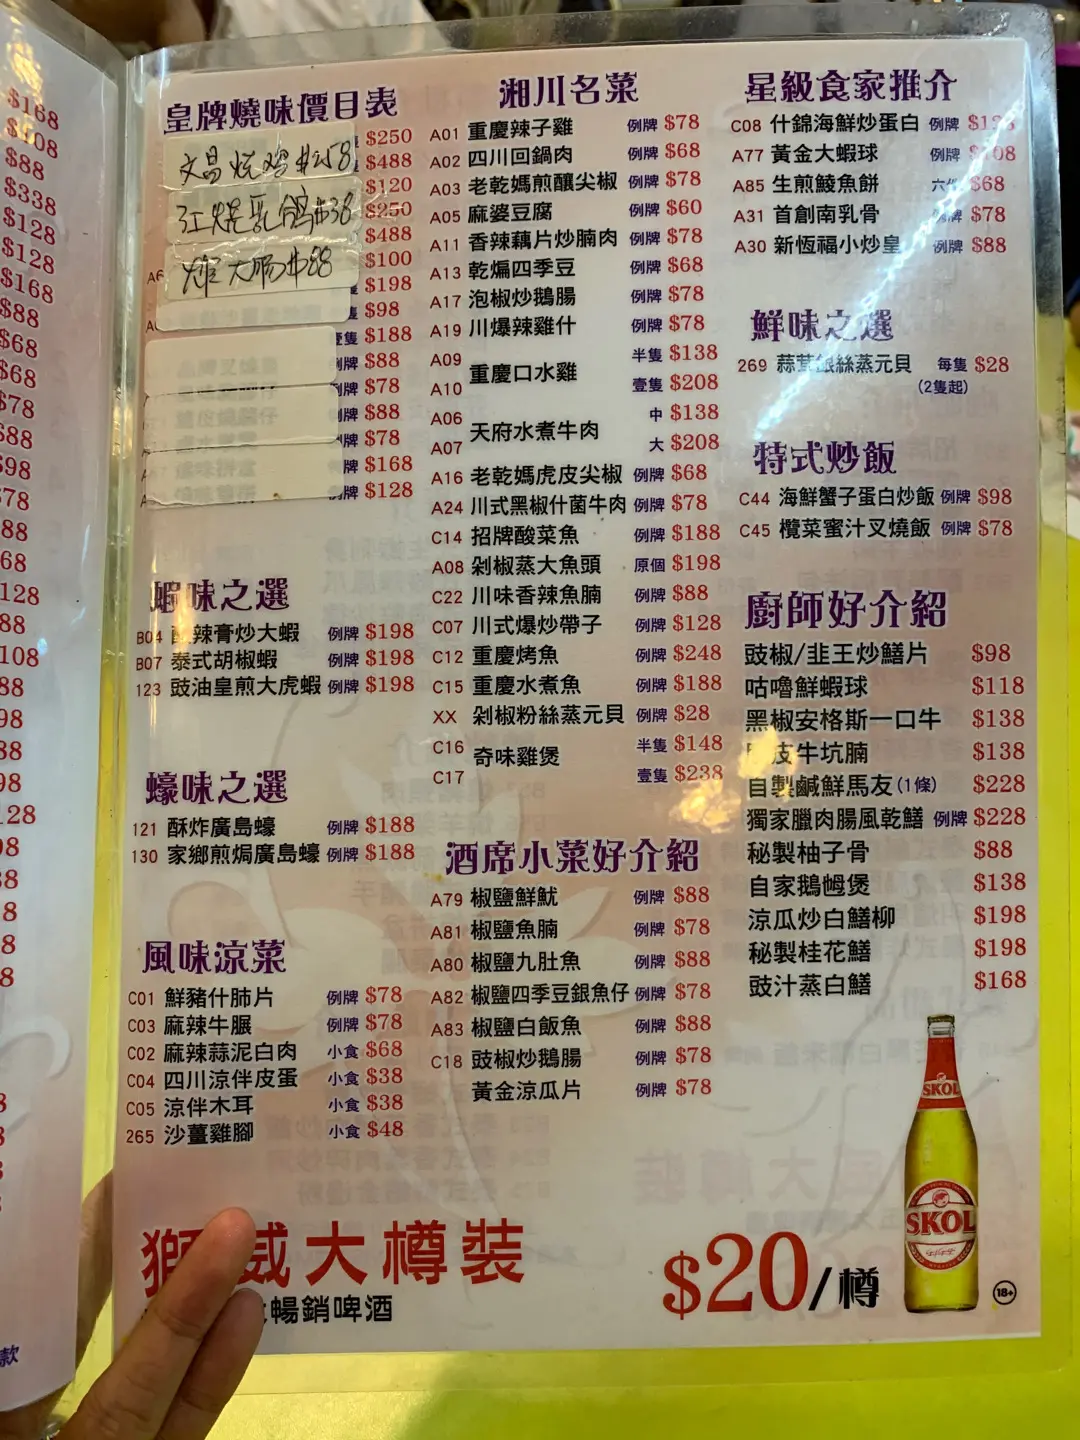 $168
$108
$88
$338
$128
$128
$168
$88
$68
$68
$78
$88
$98
皇牌燒味價目表
$250
文昌烧鸡 $158
$488
$120
红烧乳鸽 $38
$250
$488
大肠 $88
$100
$198
$98
壹隻 $188
例牌 $88
例牌 $78
例牌 $88
例牌 $78
例牌 $168
例牌 $128
蝦味之選
B04 辣膏炒大蝦 例牌 $198
B07 泰式胡椒蝦 例牌 $198
123 豉油皇煎大虎蝦 例牌 $198
蠔味之選
121 酥炸廣島蠔 例牌 $188
130 家鄉煎焗廣島蠔 例牌 $188
風味涼菜
C01 鮮豬什肺片 例牌 $78
C03 麻辣牛𦟌 例牌 $78
C02 麻辣蒜泥白肉 小食 $68
C04 四川涼伴皮蛋 小食 $38
C05 涼伴木耳 小食 $38
265 沙薑雞腳 小食 $48
湘川名菜
A01 重慶辣子雞 例牌 $78
A02 四川回鍋肉 例牌 $68
A03 老乾媽煎釀尖椒 例牌 $78
A05 麻婆豆腐 例牌 $60
A11 香辣藕片炒腩肉 例牌 $78
A13 乾煸四季豆 例牌 $68
A17 泡椒炒鵝腸 例牌 $78
A19 川爆辣雞什 例牌 $78
A09 重慶口水雞 半隻 $138
A10 壹隻 $208
A06 天府水煮牛肉 中 $138
A07 大 $208
A16 老乾媽虎皮尖椒 例牌 $68
A24 川式黑椒什菌牛肉 例牌 $78
C14 招牌酸菜魚 例牌 $188
A08 剁椒蒸大魚頭 原個 $198
C22 川味香辣魚腩 例牌 $88
C07 川式爆炒帶子 例牌 $128
C12 重慶烤魚 例牌 $248
C15 重慶水煮魚 例牌 $188
XX 剁椒粉絲蒸元貝 例牌 $28
C16 奇味雞煲 半隻 $148
C17 壹隻 $238
酒席小菜好介紹
A79 椒鹽鮮魷 例牌 $88
A81 椒鹽魚腩 例牌 $78
A80 椒鹽九肚魚 例牌 $88
A82 椒鹽四季豆銀魚仔 例牌 $78
A83 椒鹽白飯魚 例牌 $88
C18 豉椒炒鵝腸 例牌 $78
黃金涼瓜片 例牌 $78
星級食家推介
C08 什錦海鮮炒蛋白 例牌
A77 黃金大蝦球 例牌 $108
A85 生煎鯪魚餅 $68
A31 首創南乳骨 例牌 $78
A30 新恆福小炒皇 例牌 $88
鮮味之選
269 蒜茸銀絲蒸元貝 每隻 $28
(2隻起)
特式炒飯
C44 海鮮蟹子蛋白炒飯 例牌 $98
C45 欖菜蜜汁叉燒飯 例牌 $78
廚師好介紹
豉椒/韭王炒鱔片 $98
咕嚕鮮蝦球 $118
黑椒安格斯一口牛 $138
皮牛坑腩 $138
自製鹹鮮馬友(1條) $228
獨家臘肉腸風乾鱔 例牌 $228
秘製柚子骨 $88
自家鵝乸煲 $138
涼瓜炒白鱔柳 $198
秘製桂花鱔 $198
豉汁蒸白鱔 $168
獅威大樽裝
暢銷啤酒
$20/樽
SKOL
SKOL
18+
款